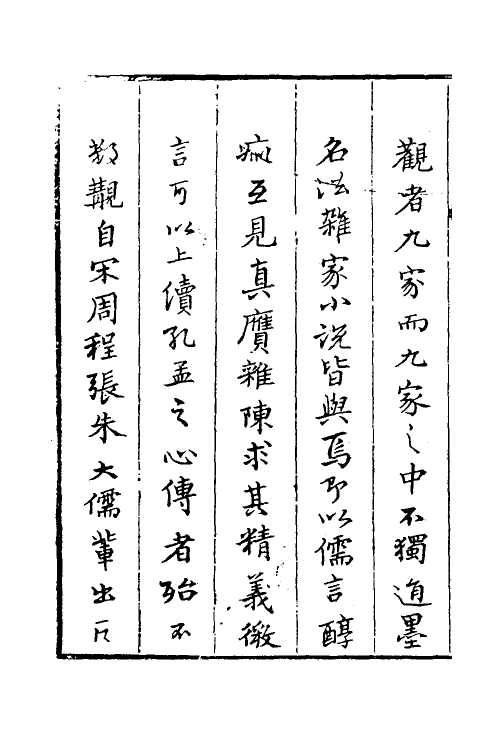 觀者九家而九家之中不獨道墨
名法雜家小說皆與焉即以儒言醇
疵互見真贋雜陳求其精義微
言可以上續孔孟之心傳者殆不
數覯自宋周程張朱大儒輩出后